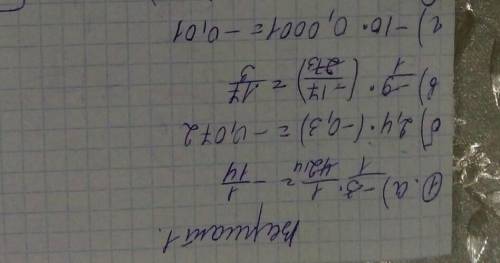 Вариант 1.
①. а) -3/1 · 1/42₁₄ = - 1/14
б) 2,4 · (-0,3) = -0,072
в) -9/1 · (-17/27₃) = 17/3
г) -10 · 0,0001 = -0,01